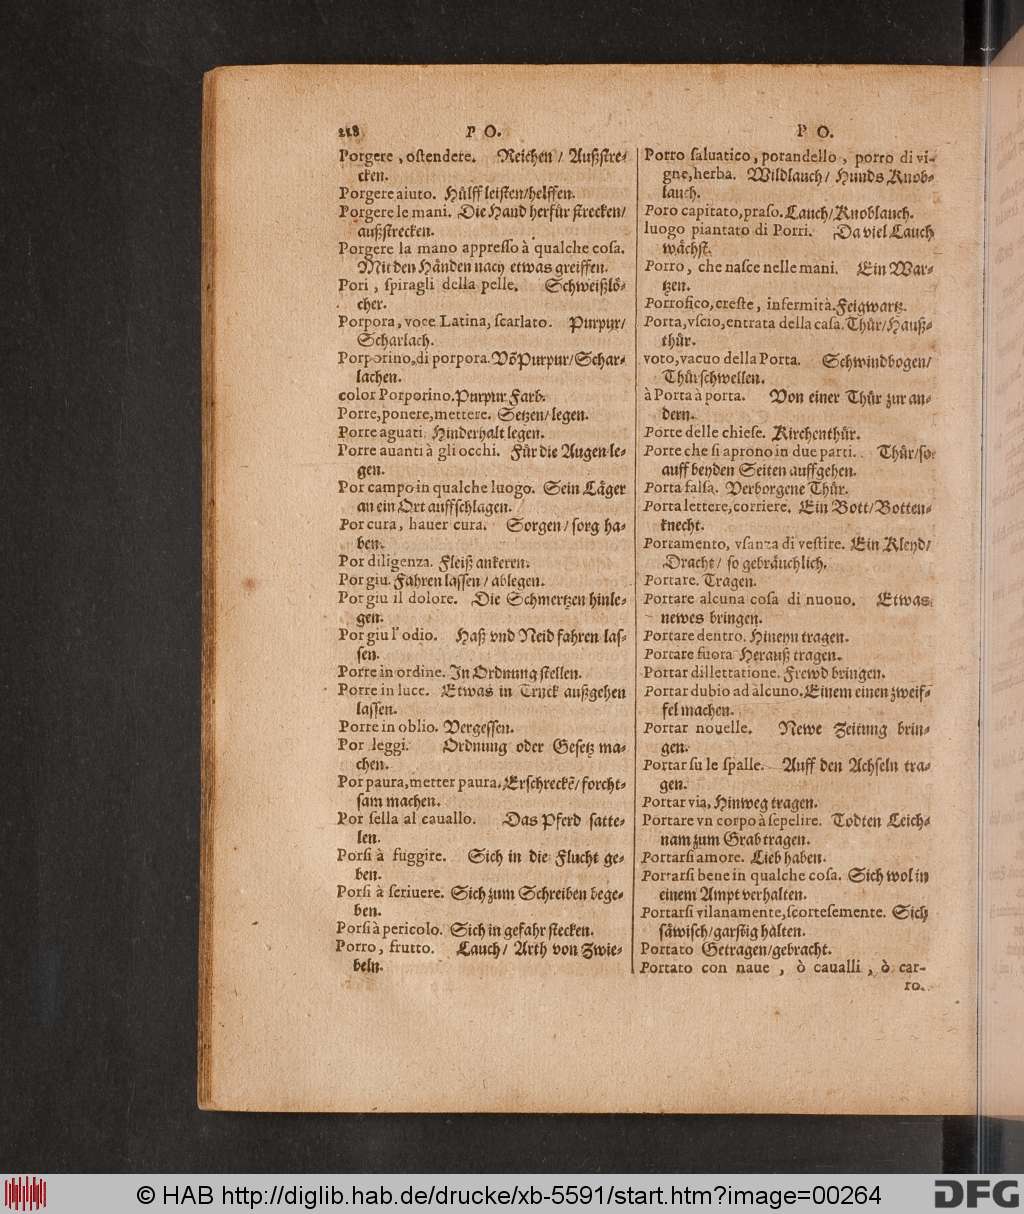 218 P O.
Porgere, ostendere. Reichen / Außstre-
cken.
Porgere aiuto. Hülff leisten/helffen.
Porgere le mani. Die Hand herfür strecken/
außstrecken.
Porgere la mano appresso à qualche cosa.
Mit den Händen nach etwas greiffen.
Pori, spiragli della pelle. Schweißlö-
cher.
Porpora, voce Latina, scarlato. Purpur/
Scharlach.
Porporino, di porpora. Võ Purpur/Schar-
lachen.
color Porporino. Purpur Farb.
Porre, ponere, mettere. Setzen/ legen.
Porre aguati. Hinderhalt legen.
Porre auanti à gli occhi. Für die Augen le-
gen.
Por campo in qualche luogo. Sein Läger
an ein Ort auffschlagen.
Por cura, hauer cura. Sorgen/ sorg ha-
ben.
Por diligenza. Fleiß ankeren.
Por giu. Fahren lassen / ablegen.
Por giu il dolore. Die Schmertzen hinle-
gen.
Por giu l'odio. Haß vnd Neid fahren las-
sen.
Porre in ordine. In Ordnung stellen.
Porre in luce. Etwas in Truck außgehen
lassen.
Porre in oblio. Vergessen.
Por leggi. Ordnung oder Gesetz ma-
chen.
Por paura, metter paura. Erschreckẽ/ forcht-
sam machen.
Por sella al cauallo. Das Pferd satte-
len.
Porsi à fuggire. Sich in die Flucht ge-
ben.
Porsi à scriuere. Sich zum Schreiben bege-
ben.
Porsi à pericolo. Sich in gefahr stecken.
Porro, frutto. Lauch/ Arth von Zwie-
beln.
P O.
Porro saluatico, porandello, porro di vi-
gne, herba. Wildlauch/ Hunds Knob-
lauch.
Poro capitato, praso. Lauch/Knoblauch.
luogo piantato di Porri. Da viel Lauch
wächst.
Porro, che nasce nelle mani. Ein War-
tzen.
Porrofico, creste, infermità. Feigwartz.
Porta, vscio, entrata della casa. Thür/Hauß-
thür.
voto, vacuo della Porta. Schwindbogen/
Thürschwellen.
à Porta à porta. Von einer Thür zur an-
dern.
Porte delle chiese. Kirchenthür.
Porte che si aprono in due parti. Thür/so
auff beyden Seiten auffgehen.
Porta falsa. Verborgene Thür.
Porta lettere, corriere. Ein Bott/Botten-
knecht.
Portamento, vsanza di vestire. Ein Kleyd/
Dracht/ so gebräuchlich.
Portare. Tragen.
Portare alcuna cosa di nuouo. Etwas
newes bringen.
Portare dentro. Hineyn tragen.
Portare fuora Herauß tragen.
Portar dilettatione. Frewd bringen.
Portar dubio ad alcuno. Einem einen zweif-
fel machen.
Portar nouelle. Newe Zeitung brin-
gen.
Portar su le spalle. Auff den Achseln tra-
gen.
Portar via. Hinweg tragen.
Portare vn corpo à sepelire. Todten Leich-
nam zum Grab tragen.
Portarsi amore. Lieb haben.
Portarsi bene in qualche cosa. Sich wol in
einem Ampt verhalten.
Portarsi vilanamente, scortesemente. Sich
säwisch/garstig halten.
Portato Getragen/gebracht.
Portato con naue, ò caualli, ò car-
ro.
© HAB http://diglib.hab.de/drucke/xb-5591/start.htm?image=00264
DFG